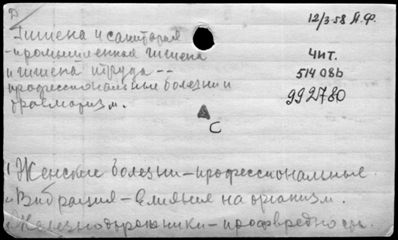 12/3-58 Я.Ф.
Гигиена и санитария
- промышленная гигиена
и гигиена труда --
профессиональные болезни и
травматизм.
Чит.
514 08b
992780
A
C
Женские болезни - профессиональные.
Вибрация - влияние на организм.
Железнодорожники - профвредность.